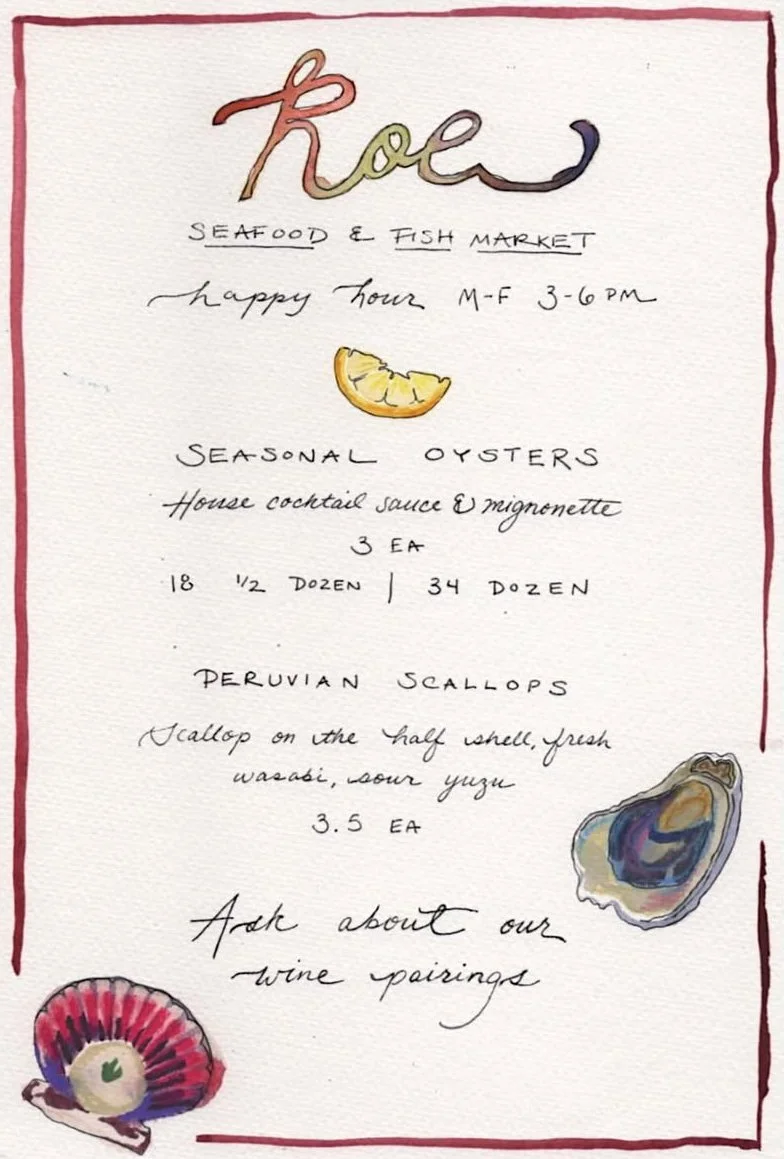 Roe
SEAFOOD & FISH MARKET
happy hour M-F 3-6 PM
SEASONAL OYSTERS
House cocktail sauce & mignonette
3 EA
18 1/2 DOZEN | 34 DOZEN
PERUVIAN SCALLOPS
Scallop on the half shell, fresh
wasabi, sour yuzu
3.5 EA
Ask about our
wine pairings